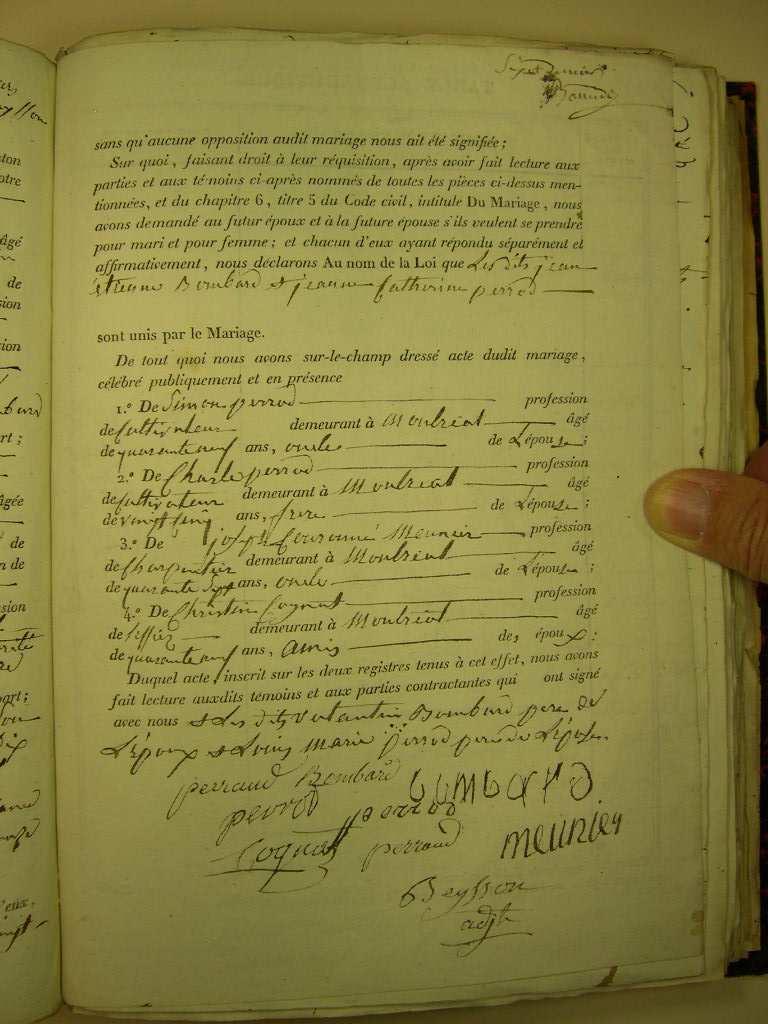 sans qu'aucune opposition audit mariage nous ait été signifiée ;
Sur quoi, faisant droit à leur réquisition, après avoir fait lecture aux
parties et aux témoins ci-après nommés de toutes les pièces ci-dessus men-
tionnées, et du chapitre 6, titre 5 du Code civil, intitulé Du Mariage, nous
avons demandé au futur époux et à la future épouse s'ils veulent se prendre
pour mari et pour femme ; et chacun d'eux ayant répondu séparément et
affirmativement, nous déclarons Au nom de la Loi que Les dits jean
etienne Bombard et jeanne Catherine perrod
sont unis par le Mariage.
De tout quoi nous avons sur-le-champ dressé acte dudit mariage,
célébré publiquement et en présence
1.º De Simon perrod profession
de Cultivateur demeurant à Montréat âgé
de quarante neuf ans, oncle de L'épouse ;
2.º De Charle perrod profession
de Cultivateur demeurant à Montréat âgé
de vingt sinq ans, frere de L'épouse ;
3.º De joseph Couronné Meunier profession
de Charpentier demeurant à Montréat âgé
de quarante sept ans, oncle de L'épouse ;
4.º De Christin Cognat profession
de demeurant à Montréat âgé
de quarante neuf ans, amis de, époux ;
Duquel acte, inscrit sur les deux registres tenus à cet effet, nous avons
fait lecture auxdits témoins et aux parties contractantes qui ont signé
avec nous et Les dits valantin Bombard pere de
L'époux et Louis marie perrod pere de L'épouse
perraud Bombard bombard
perrod perrod
Cognat perraud meunier
Beysson
adjt